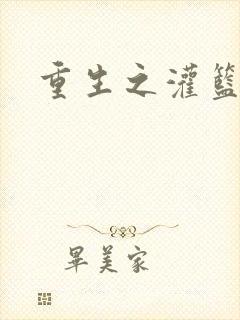 重生之灌籃
畢美家